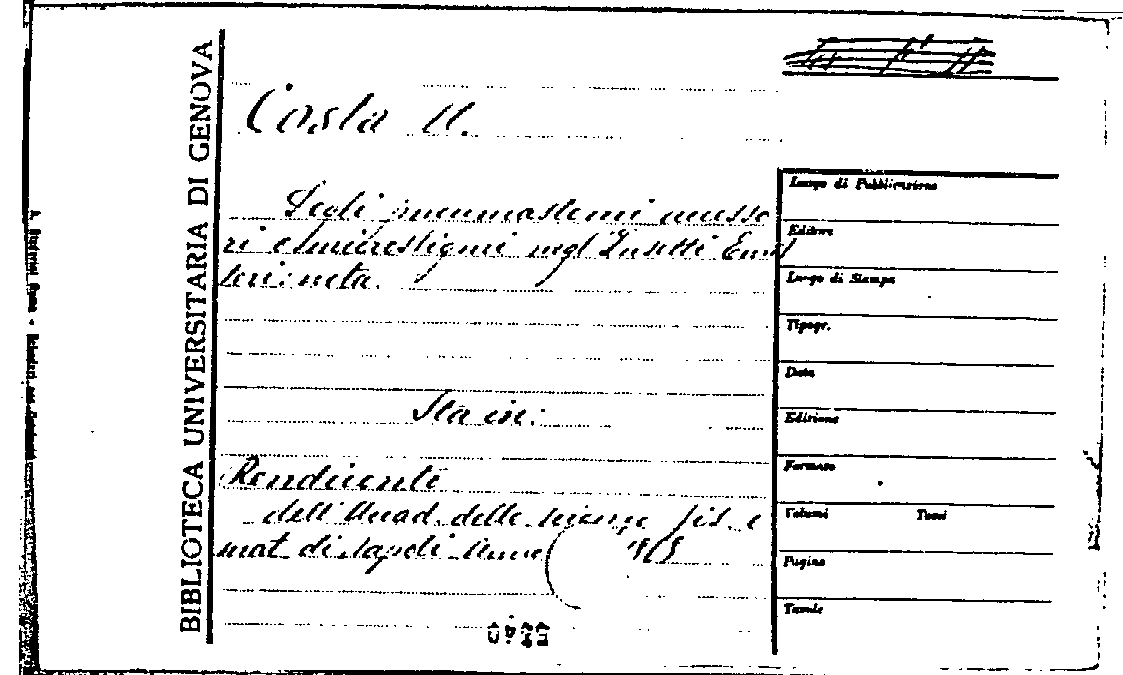 BIBLIOTECA UNIVERSITARIA DI GENOVA
Costa A.
Degli pneumostemi accesso
ri e microstigmi negl'Insetti Emit
teri: nota.
Sta in:
Rendiconti
dell'Accad. delle scienze fis. e
mat di Napoli Anno
5240
Luogo di Pubblicazione
Editore
Luogo di Stampa
Tipogr.
Data
Edizione
Formato
Volumi Tomi
Pagine
Tavole